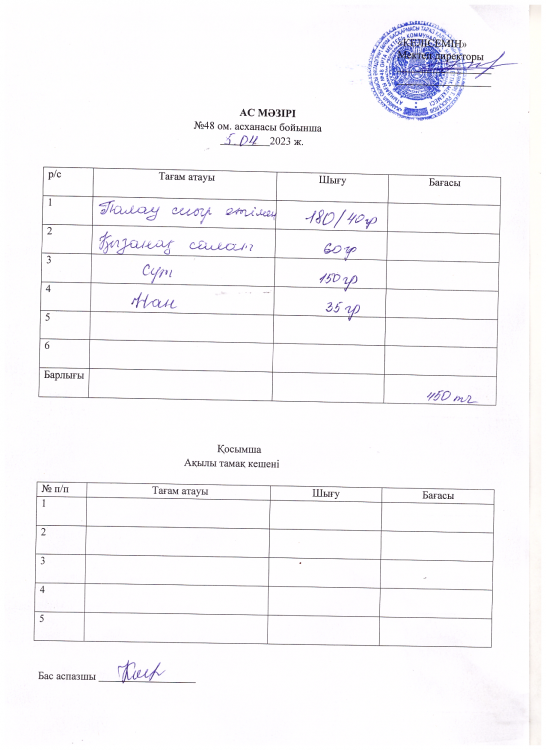 «КЕЛІСЕМІН»
Мектеп директоры
АС МӘЗІРІ
№48 ом. асханасы бойынша
5.04 2023 ж.
р/с Тағам атауы Шығу Бағасы
1 Палау сиыр етімен 180/40гр
2 Қызанақ салат 60гр
3 Сүт 150гр
4 Нан 35гр
5
6
Барлығы 450тг
Қосымша
Ақылы тамақ кешені
№ п/п Тағам атауы Шығу Бағасы
1
2
3
4
5
Бас аспазшы